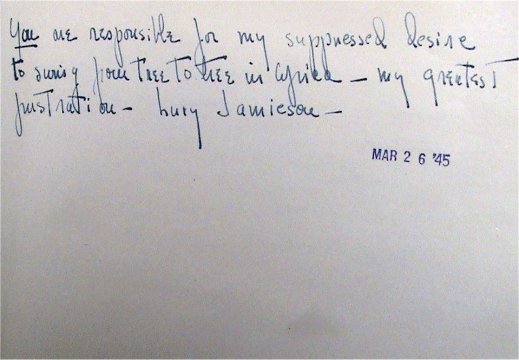 You are responsible for my suppressed desire
to swing from tree to tree in Africa — my greatest
frustration — Lucy Jamieson —
MAR 26 '45